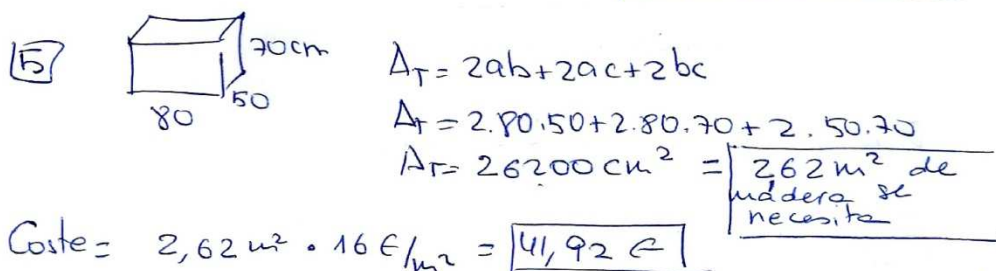 5
70cm
80
50
A_T = 2ab+2ac+2bc
A_T = 2.80.50+2.80.70+2.50.70
A_T = 26200 cm² = 262 m² de
madera se
necesita
Coste = 2,62 m² · 16 €/m² = 41,92 €